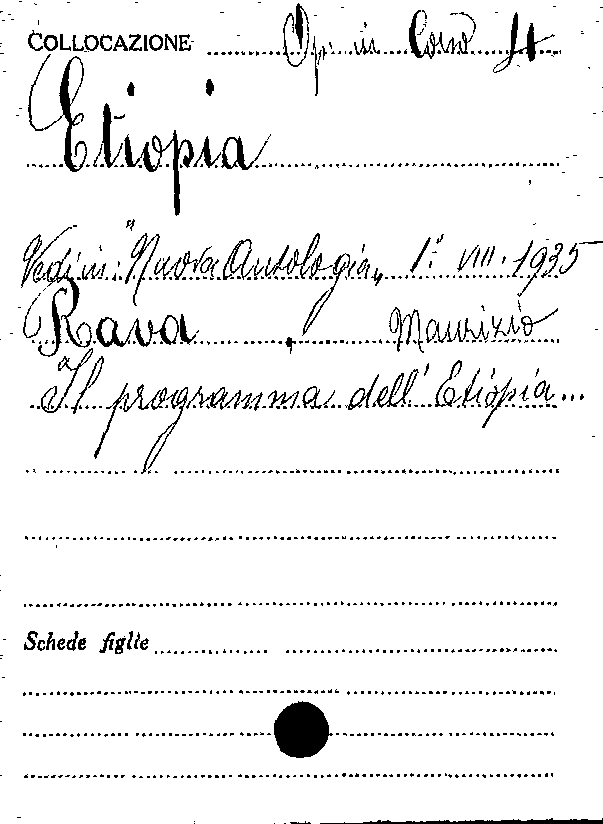 COLLOCAZIONE Op. in Corso
Etiopia
Vedi in: "Nuova Antologia" 1.° VIII. 1935
Rava, Maurizio
"Il programma dell'Etiopia...
Schede figlie